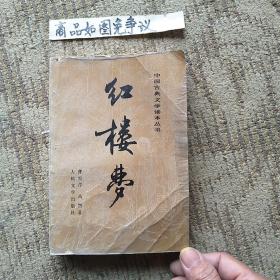 商品如图免争议
中国古典文学读本丛书
红楼梦
曹雪芹 高鹗著
人民文学出版社